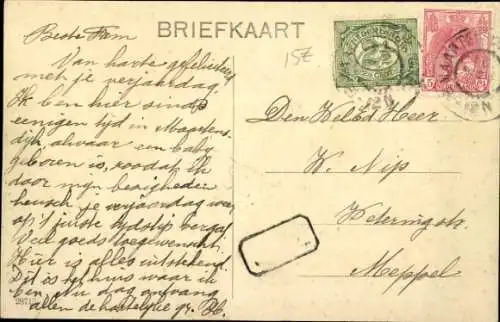 BRIEFKAART
15E
Beste Fam
Van harte gefeliciteerd
met je verjaardag.
Ik ben hier sinds
eenigen tijd in Maartens-
dijk, alwaar een baby
geboren is, zoodat ik
door mijn bezigheden
heusch je verjaardag weer
op 't juiste tijdstip vergat
Veel goeds toegewenscht
Hier is alles uitstekend.
Dit is het huis waar ik
ben
allen de hartelijke gr.
29715
Den WelEd Heer
W. Nip
Weteringstr.
Meppel